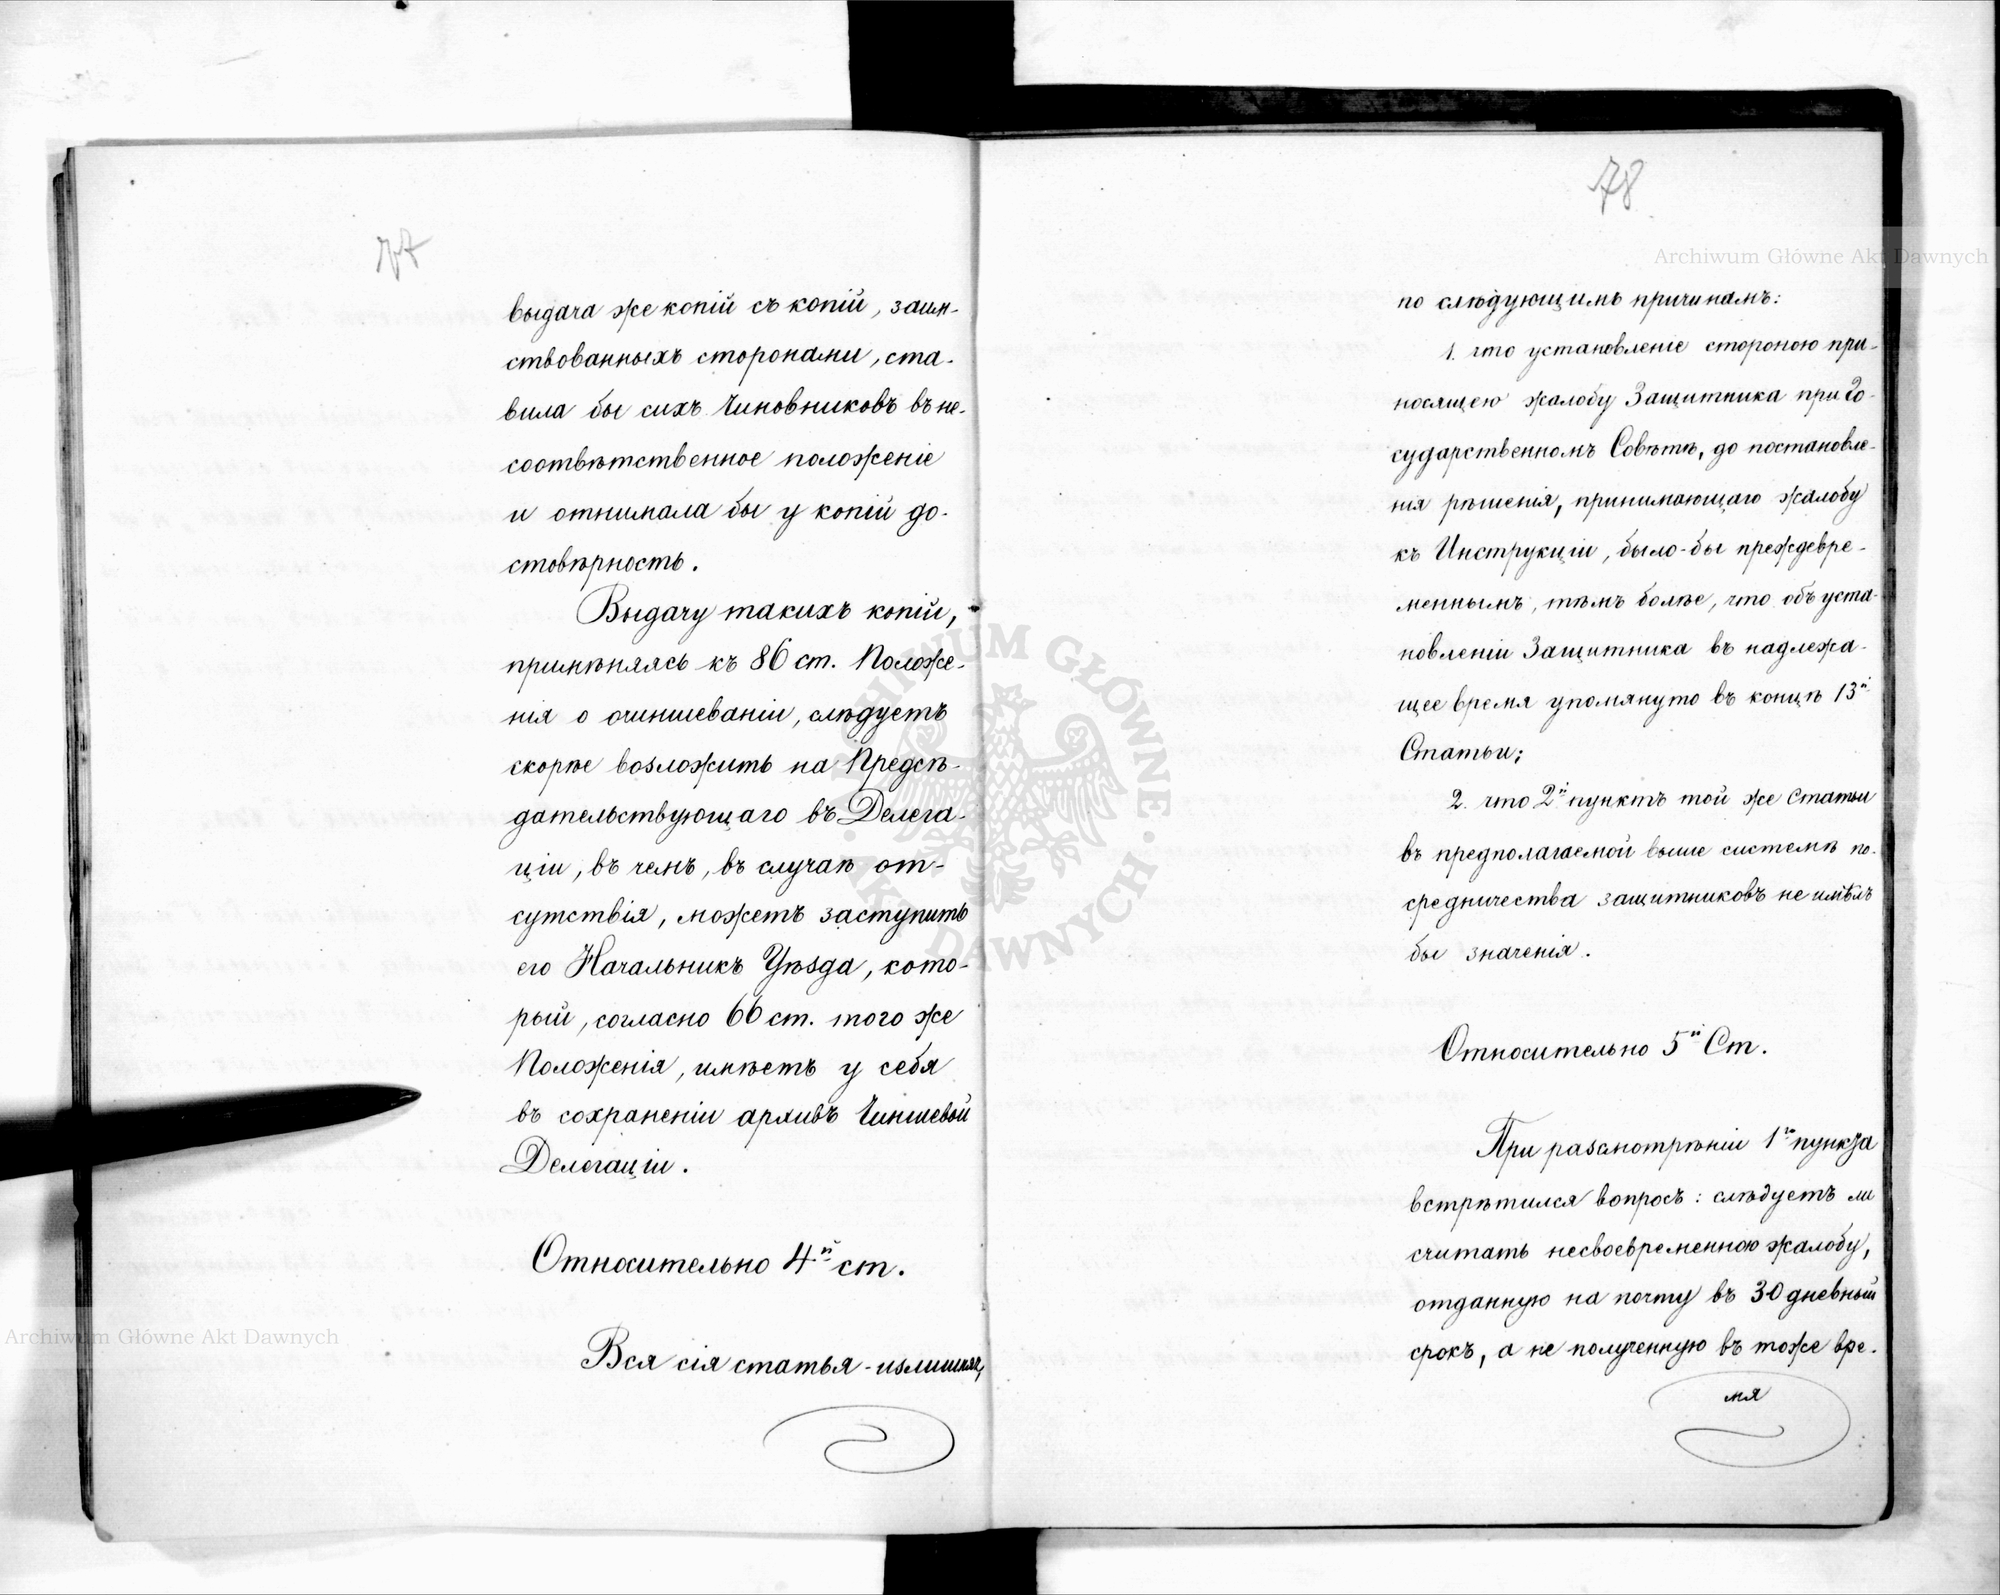 77
выдача же копій съ копій, заим-
ствованныхъ сторонами, ста-
вила бы сихъ Чиновниковъ въ не-
соотвѣтственное положеніе
и отнимала бы у копій до-
стовѣрность.
Выдачу такихъ копій,
примѣняясь къ 86 ст. Положе-
нія о очиншеваніи, слѣдуетъ
скорѣе возложить на Предсѣ-
дательствующаго въ Делега-
ціи, въ чемъ, въ случаѣ от-
сутствія, можетъ заступить
его Начальникъ Уѣзда, кото-
рый, согласно 66 ст. того же
Положенія, имѣетъ у себя
въ сохраненіи архивъ Чиншевой
Делегаціи.
Относительно 4й ст.
Вся сія статья - излишняя,
78
по слѣдующимъ причинамъ:
1. что установленіе стороною при-
носящею жалобу Защитника при Го-
сударственномъ Совѣтѣ, до постановле-
нія рѣшенія, принимающаго жалобу
къ Инструкціи, было-бы преждевре-
меннымъ, тѣмъ болѣе, что объ уста-
новленіи Защитника въ надлежа-
щее время упомянуто въ концѣ 13й
Статьи;
2. что 2й пунктъ той же Статьи
въ предполагаемой выше системѣ по-
средничества защитниковъ не имѣлъ
бы значенія.
Относительно 5й Ст.
При разсмотрѣніи 1го пункта
встрѣтился вопросъ: слѣдуетъ ли
считать несвоевременною жалобу,
отданную на почту въ 30 дневный
срокъ, а не полученную въ тоже вре-
мя
Archiwum Główne Akt Dawnych
Archiwum Główne Akt Dawnych
ARCHIWUM GŁÓWNE · AKT DAWNYCH ·